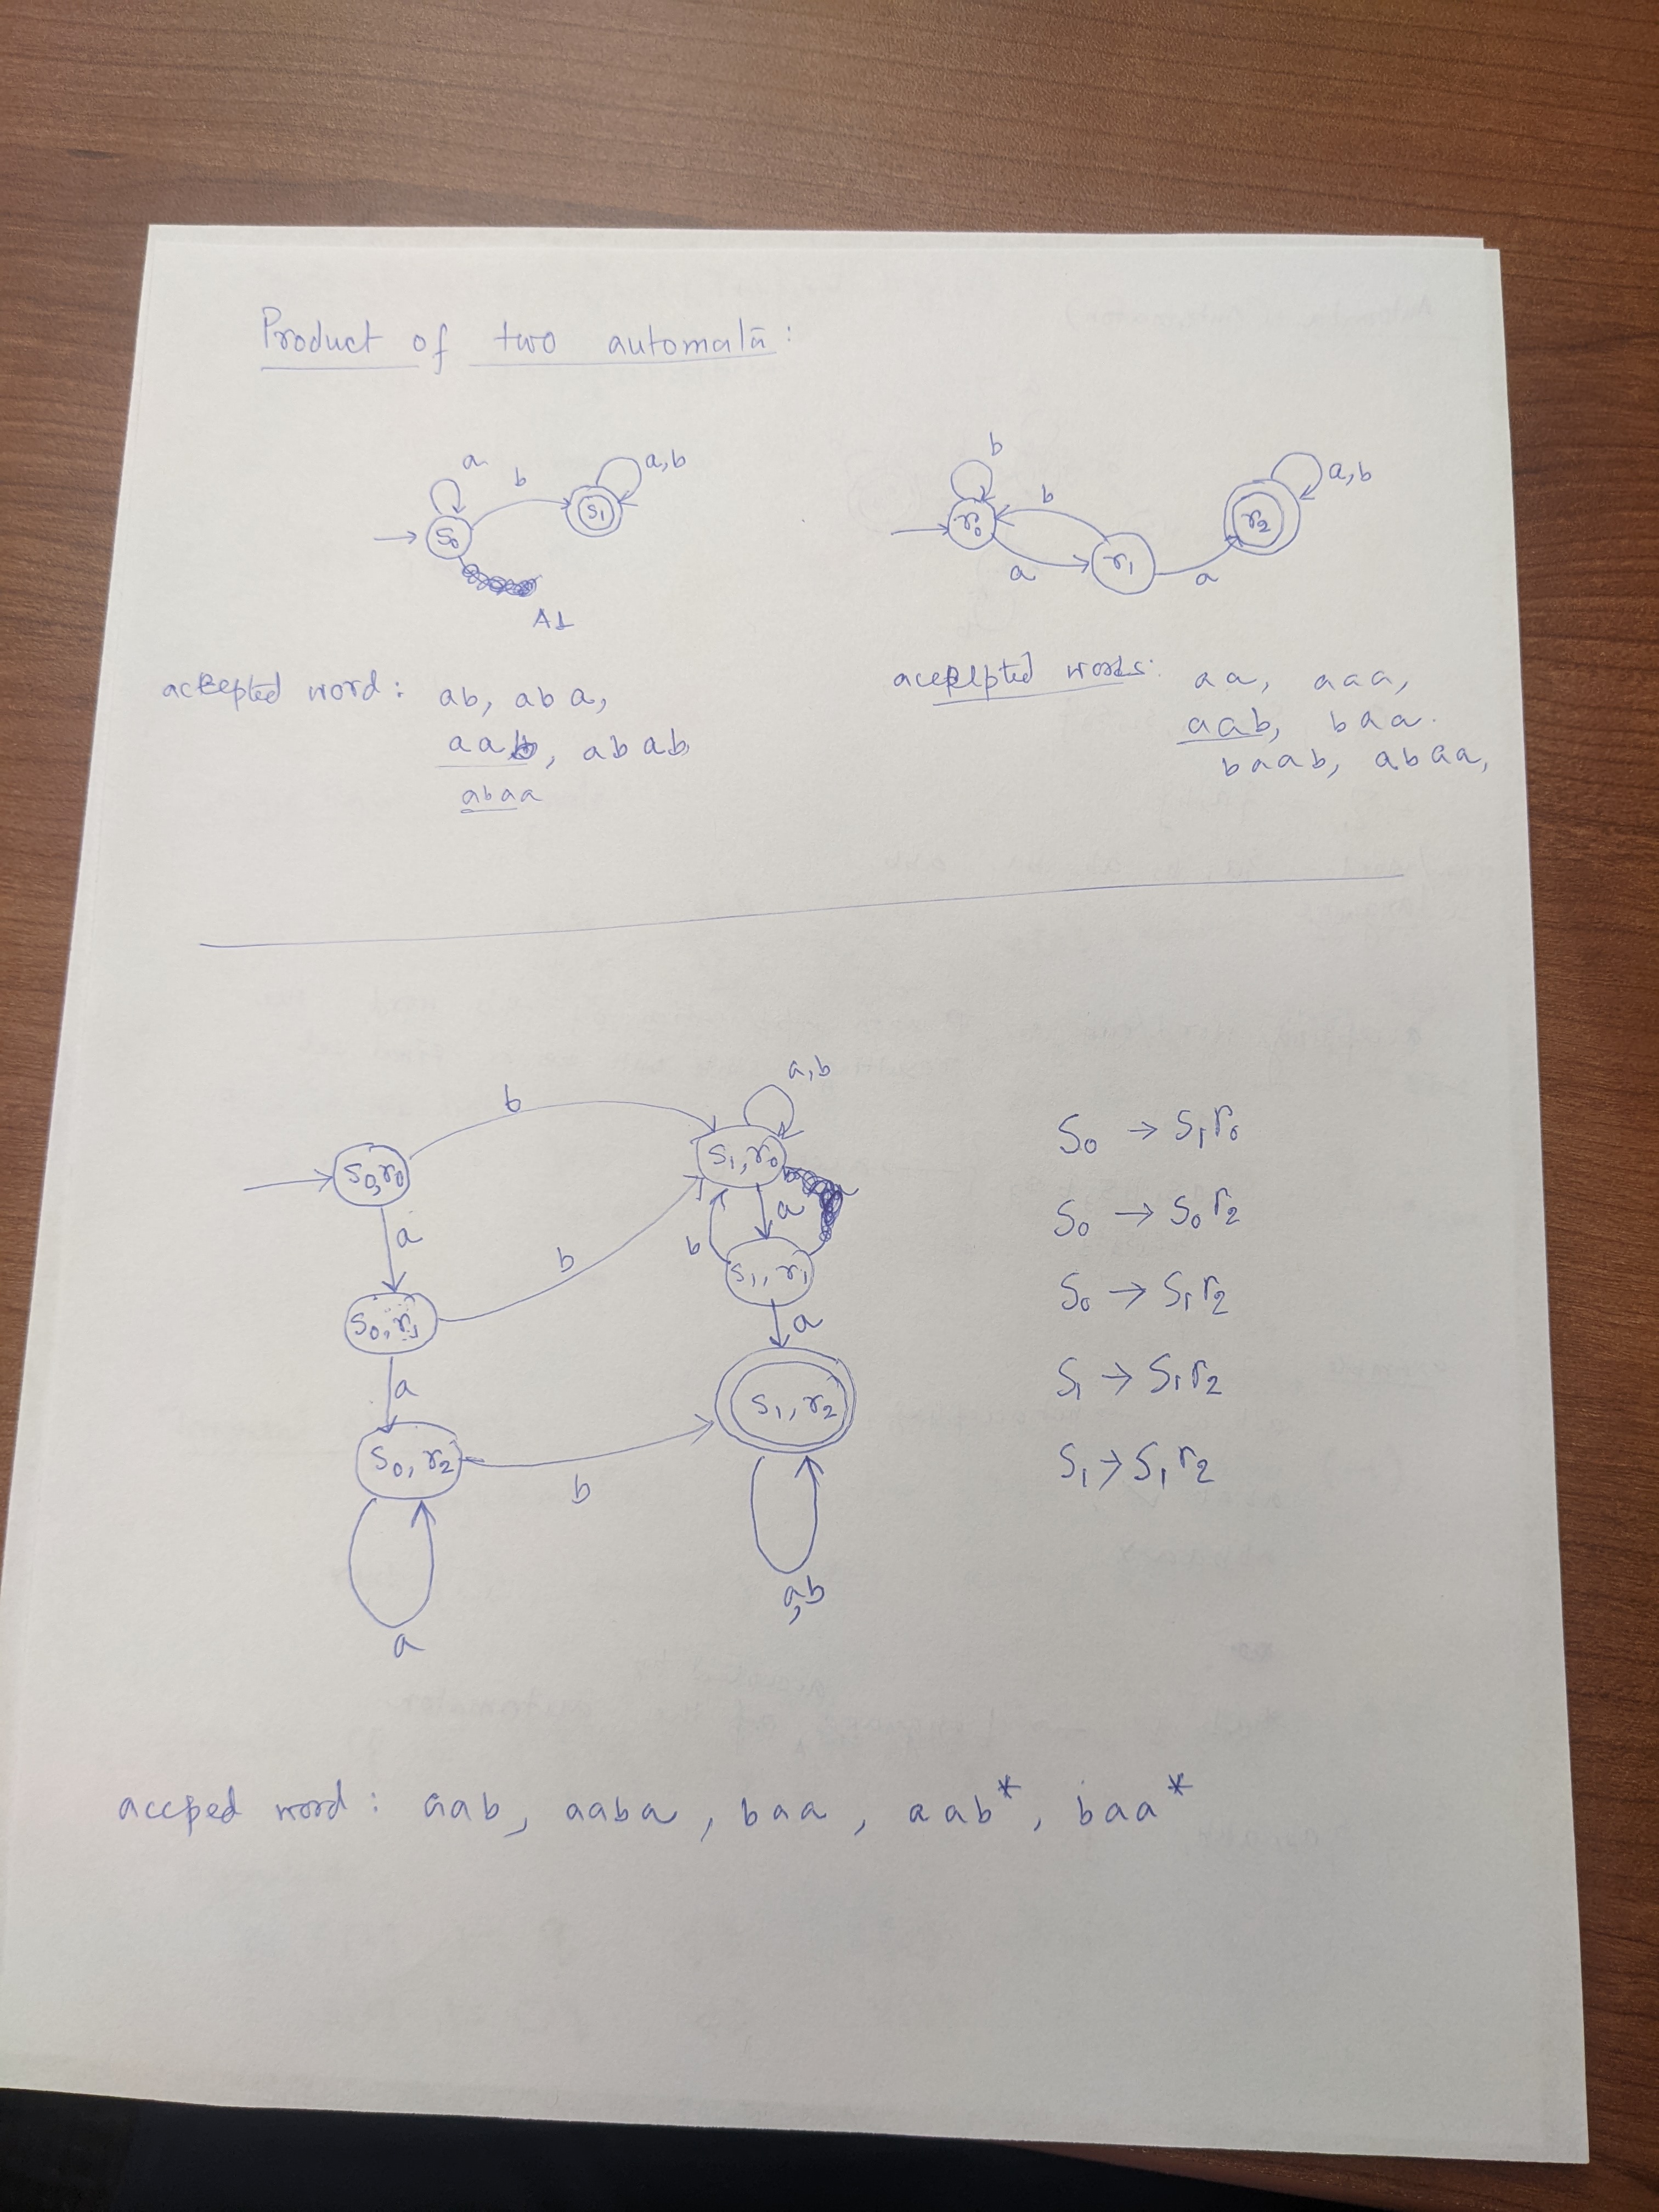 Product of two automata:
a
b
a,b
S₀
S₁
A1
b
b
a,b
r₀
a
r₁
a
r₂
accepted word: ab, aba,
aab, abab
abaa
accelpted words: aa, aaa,
aab, baa.
baab, abaa,
b
a,b
S₀,r₀
S₁,r₀
a
a
b
b
S₀,r₁
S₁,r₁
a
a
S₀,r₂
S₁,r₂
b
a
a,b
S₀ → S₁r₀
S₀ → S₀r₂
S₀ → S₁r₂
S₁ → S₁r₂
S₁ → S₁r₂
accped word: aab, aaba, baa, aab*, baa*